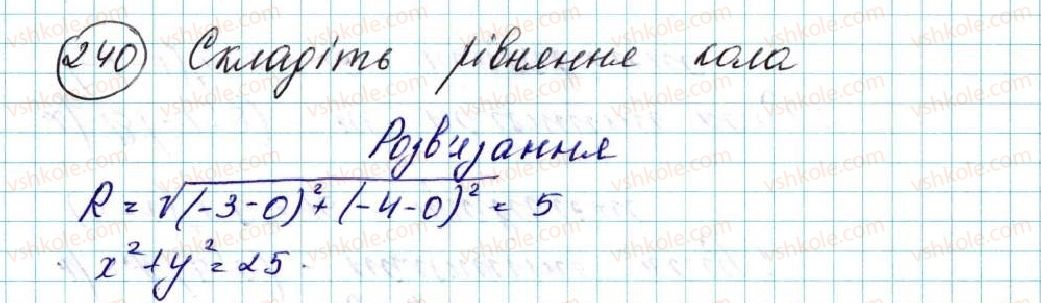 240 Складіть рівняння кола
Розв'язання
R = √(-3-0)² + (-4-0)² = 5
x² + y² = 25.